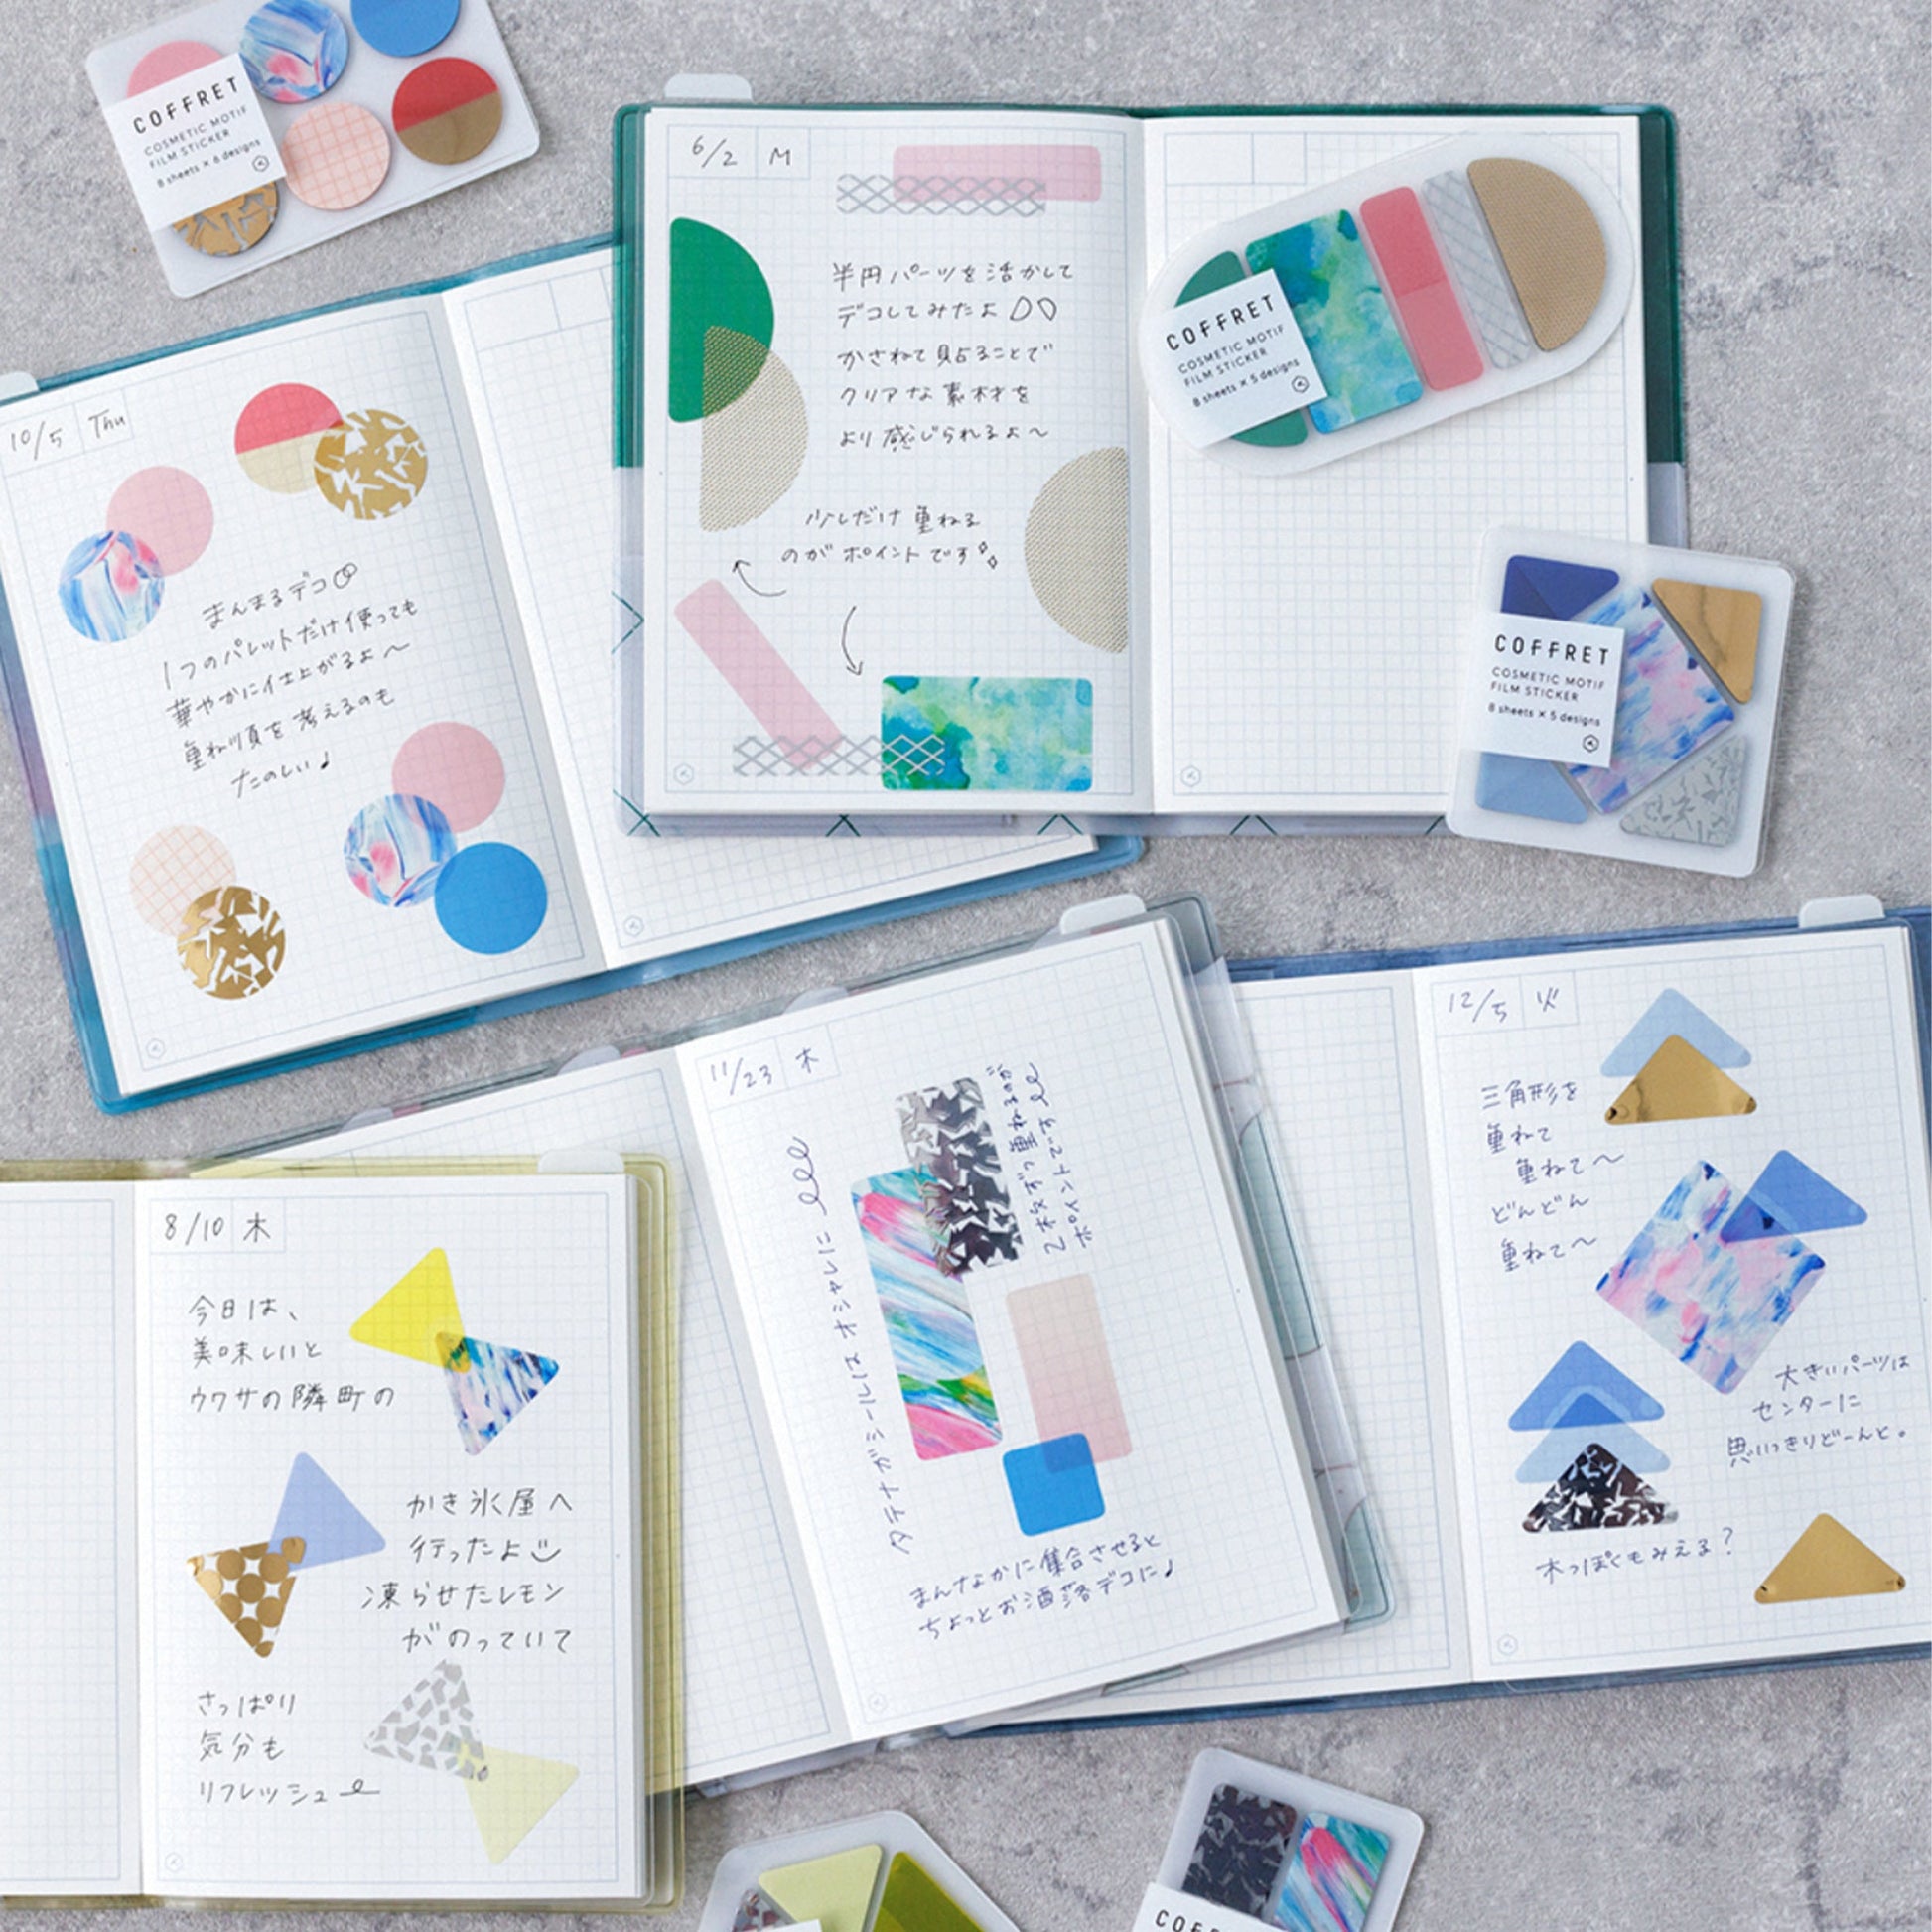 COFFRET
COSMETIC MOTIF
FILM STICKER
8 sheets × 6 designs
6/2 M
半円パーツを活かして
デコしてみたよ
かさねて貼ることで
クリアな素材を
より感じられるよ〜
少しだけ重ねる
のがポイントです
COFFRET
COSMETIC MOTIF
FILM STICKER
8 sheets × 5 designs
10/5 Thu
まんまるデコ
1つのパレットだけ使っても
華やかに仕上がるよ〜
重ね順を考えるのも
たのしい♪
COFFRET
COSMETIC MOTIF
FILM STICKER
8 sheets × 5 designs
11/23 木
タテナガシールはオシャレに
2枚ずつ重ねるのが
ポイントです
まんなかに集合させると
ちょっとお洒落デコに♪
12/5 火
三角形を
重ねて
重ねて〜
どんどん
重ねて〜
大きいパーツは
センターに
思いっきりどーんと。
木っぽくもみえる?
8/10 木
今日は、
美味しいと
ウワサの隣町の
かき氷屋へ
行ったよ
凍らせたレモン
がのっていて
さっぱり
気分も
リフレッシュ